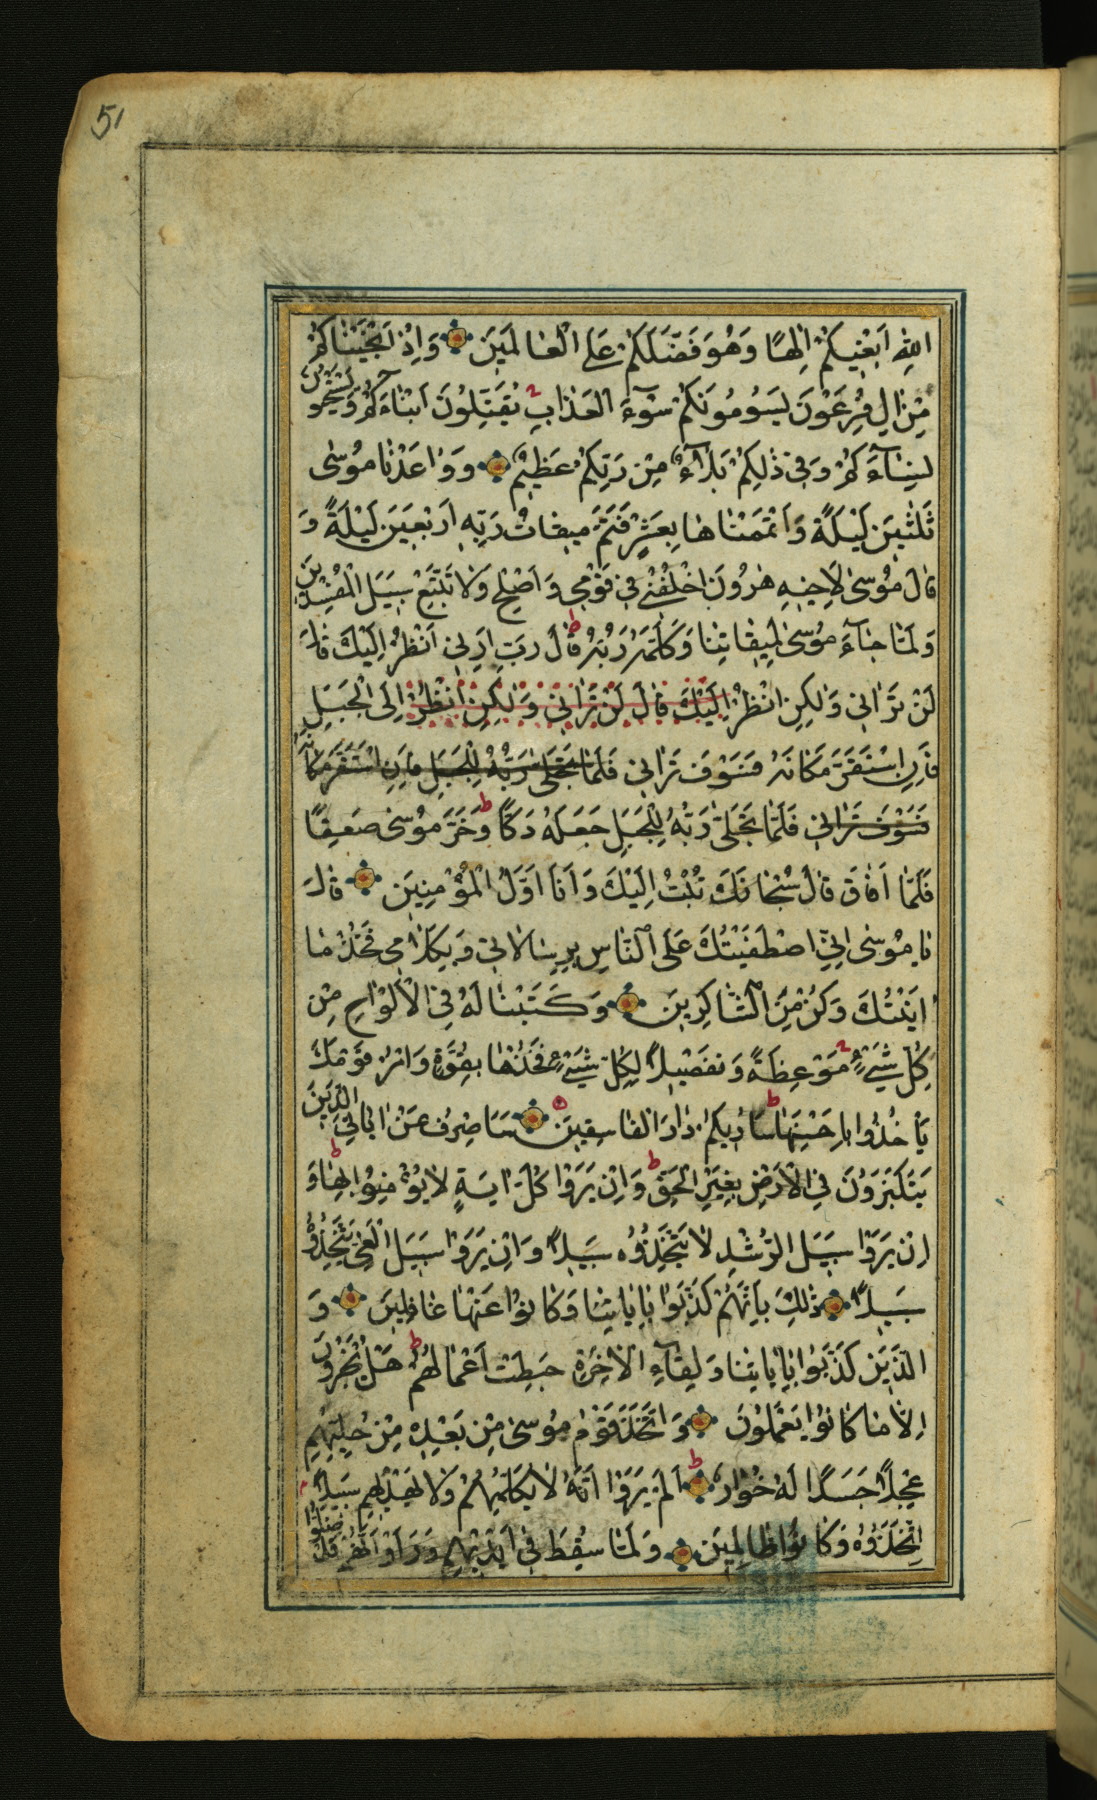 51
الله اَبْغيكُمْ اِلٰهًا وَهُوَ فَضَّلَكُمْ عَلَى الْعٰالَمينَ وَاِذْ اَنْجَيْنٰاكُمْ
مِنْ اٰلِ فِرْعَوْنَ يَسُومُونَكُمْ سُوۤءَ الْعَذٰابِ يُقَتِّلُونَ اَبْنٰاۤءَكُمْ وَيَسْتَحْيُونَ
نِسٰاۤءَكُمْ وَفى ذٰلِكُمْ بَلٰاۤءٌ مِنْ رَبِّكُمْ عَظيمٌ وَوٰاعَدْنٰا مُوسٰى
ثَلٰثينَ لَيْلَةً وَاَتْمَمْنٰاهٰا بِعَشْرٍ فَتَمَّ ميقٰاتُ رَبِّهِ اَرْبَعينَ لَيْلَةً وَ
قٰالَ مُوسٰى لِاَخيهِ هٰرُونَ اخْلُفْنى فى قَوْمى وَاَصْلِحْ وَلٰا تَتَّبِعْ سَبيلَ الْمُفْسِدينَ
وَلَمّٰا جٰاۤءَ مُوسٰى لِميقٰاتِنٰا وَكَلَّمَهُ رَبُّهُ قٰالَ رَبِّ اَرِنى اَنْظُرْ اِلَيْكَ قٰالَ
لَنْ تَرٰانى وَلٰكِنِ انْظُرْ اِلَيْكَ قٰالَ لَنْ تَرٰانى وَلٰكِنِ انْظُرْ اِلَى الْجَبَلِ
فَاِنِ اسْتَقَرَّ مَكٰانَهُ فَسَوْفَ تَرٰانى فَلَمّٰا تَجَلّٰى رَبُّهُ لِلْجَبَلِ فَاِنِ اسْتَقَرَّ مَكٰانَهُ
فَسَوْفَ تَرٰانى فَلَمّٰا تَجَلّٰى رَبُّهُ لِلْجَبَلِ جَعَلَهُ دَكًّا وَخَرَّ مُوسٰى صَعِقًا
فَلَمّٰا اَفٰاقَ قٰالَ سُبْحٰانَكَ تُبْتُ اِلَيْكَ وَاَنَا اَوَّلُ الْمُؤْمِنينَ قٰالَ
يٰا مُوسٰى اِنِّى اصْطَفَيْتُكَ عَلَى النّٰاسِ بِرِسٰالٰاتى وَبِكَلٰامى فَخُذْ مٰا
اٰتَيْتُكَ وَكُنْ مِنَ الشّٰاكِرينَ وَكَتَبْنٰا لَهُ فِى الْاَلْوٰاحِ مِنْ
كُلِّ شَيْءٍ مَوْعِظَةً وَتَفْصيلًا لِكُلِّ شَيْءٍ فَخُذْهٰا بِقُوَّةٍ وَاْمُرْ قَوْمَكَ
يَاْخُذُوا بِاَحْسَنِهٰا سَاُريكُمْ دٰارَ الْفٰاسِقينَ سَاَصْرِفُ عَنْ اٰيٰاتِيَ الَّذينَ
يَتَكَبَّرُونَ فِى الْاَرْضِ بِغَيْرِ الْحَقِّ وَاِنْ يَرَوْا كُلَّ اٰيَةٍ لٰا يُؤْمِنُوا بِهٰا وَ
اِنْ يَرَوْا سَبيلَ الرُّشْدِ لٰا يَتَّخِذُوهُ سَبيلًا وَاِنْ يَرَوْا سَبيلَ الْغَيِّ يَتَّخِذُوهُ
سَبيلًا ذٰلِكَ بِاَنَّهُمْ كَذَّبُوا بِاٰيٰاتِنٰا وَكٰانُوا عَنْهٰا غٰافِلينَ وَ
الَّذينَ كَذَّبُوا بِاٰيٰاتِنٰا وَلِقٰاۤءِ الْاٰخِرَةِ حَبِطَتْ اَعْمٰالُهُمْ هَلْ يُجْزَوْنَ
اِلّٰا مٰا كٰانُوا يَعْمَلُونَ وَاتَّخَذَ قَوْمُ مُوسٰى مِنْ بَعْدِهِ مِنْ حُلِيِّهِمْ
عِجْلًا جَسَدًا لَهُ خُوٰارٌ اَلَمْ يَرَوْا اَنَّهُ لٰا يُكَلِّمُهُمْ وَلٰا يَهْديهِمْ سَبيلًا
اِتَّخَذُوهُ وَكٰانُوا ظٰالِمينَ وَلَمّٰا سُقِطَ فى اَيْديهِمْ وَرَاَوْا اَنَّهُمْ قَدْ ضَلُّوا